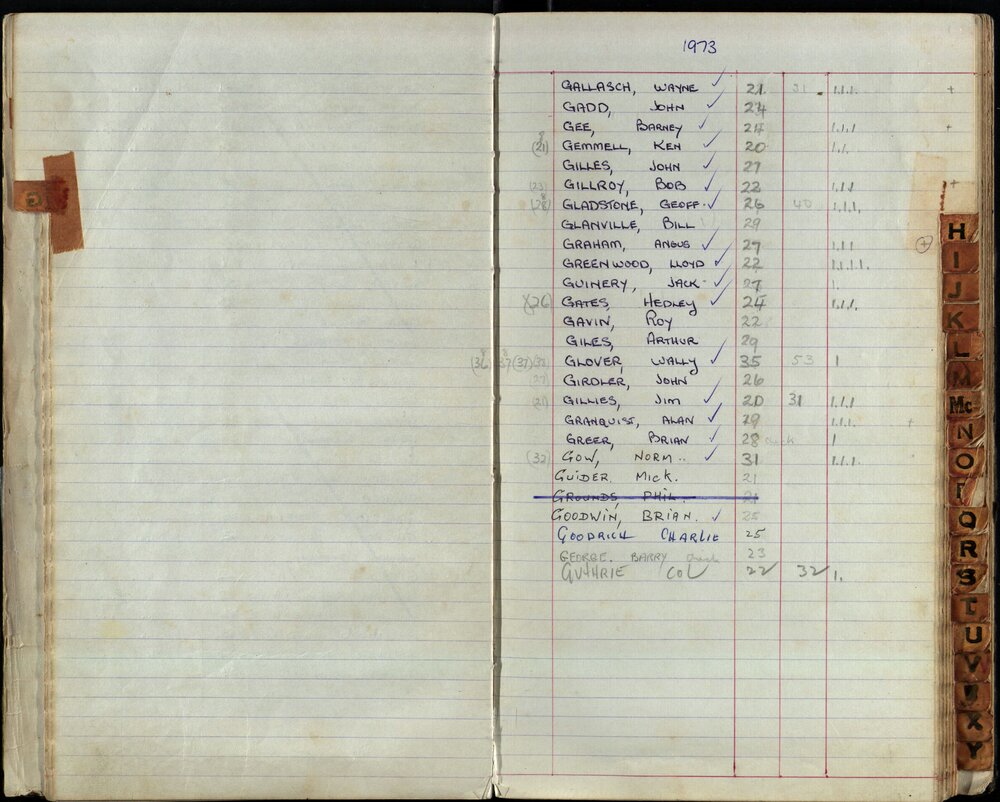 1973
GALLASCH, WAYNE ✓ 21 31 1.1.1. +
GADD, JOHN ✓ 24
GEE, BARNEY ✓ 24 1.1.1 +
(21) GEMMELL, KEN ✓ 20 1.1.
GILLES, JOHN ✓ 27
(23) GILLROY, BOB ✓ 22 1.1.1 +
(28) GLADSTONE, GEOFF ✓ 26 40 1.1.1.
GLANVILLE, BILL 29
GRAHAM, ANGUS ✓ 27 1.1.1 (+)
GREENWOOD, LLOYD ✓ 22 1.1.1.1.
GUINERY, JACK ✓ 27 1.
(26) GATES, HEDLEY ✓ 24 1.1.1.
GAVIN, ROY 22
GILES, ARTHUR 29
(36) 37 (37) GLOVER, WALLY ✓ 35 53 1
GIRDLER, JOHN 26
(21) GILLIES, JIM ✓ 20 31 1.1.1
GRANQUIST, ALAN ✓ 19 1.1.1. +
GREER, BRIAN ✓ 28 1
(32) GOW, NORM ✓ 31 1.1.1.
GUIDER. MICK. 21
GROUNDS, PHIL. 21
GOODWIN, BRIAN. ✓ 25
GOODRICH CHARLIE 25
GEORGE. BARRY 23
GUTHRIE COL ✓ 22 32 ✓ 1.
G
H
I
J
K
L
M
Mc
N
O
P
Q
R
S
T
U
V
W
X
Y